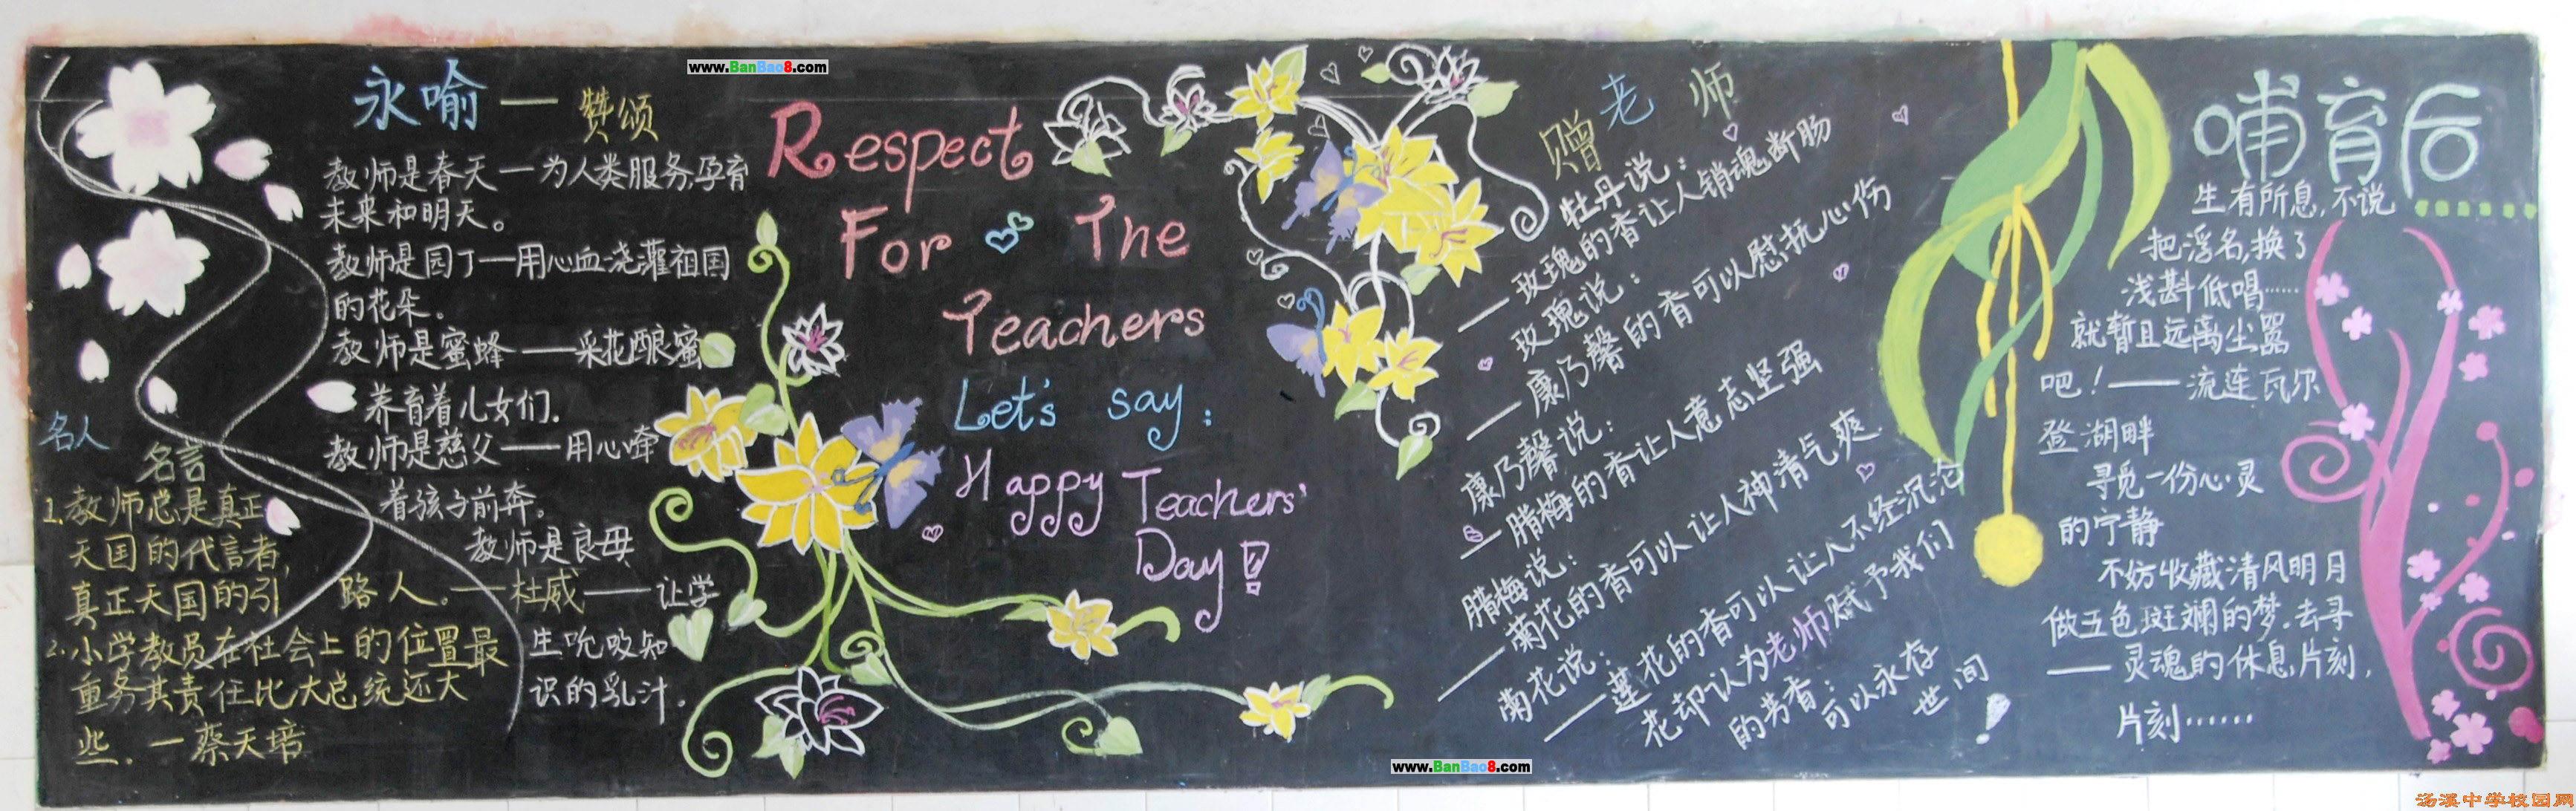 www.BanBao8.com
永喻——赞颂
教师是春天—为人类服务,孕育
未来和明天。
教师是园丁——用心血浇灌祖国
的花朵。
教师是蜜蜂——采花酿蜜
养育着儿女们.
教师是慈父——用心牵
着孩子前奔。
教师是良母
——让学
生吮吸知
识的乳汁。
名人
名言
1.教师总是真正
天国的代言者,
真正天国的引
路人。—杜威
2.小学教员在社会上的位置最
重务其责任比大总统还大
些.—蔡天培
Respect
For The
Teachers
Let's say:
Happy Teachers'
Day!
赠老师
牡丹说:
——玫瑰的香让人销魂断肠
玫瑰说:
——康乃馨的香可以慰抚心伤
康乃馨说:
——腊梅的香让人意志坚强
腊梅说:
——菊花的香可以让人神清气爽
菊花说:
——莲花的香可以让人不经沉沦
花却认为老师赋予我们
的芳香:
可以永存
世间!
哺育后
生有所息,不说
把浮名,换了
浅斟低唱……
就暂且远离尘嚣
吧!——流连瓦尔
登湖畔
寻觅一份心灵
的宁静
不妨收藏清风明月
做五色斑斓的梦.去寻
——灵魂的休息片刻,
片刻……
www.BanBao8.com
汤溪中学校园网